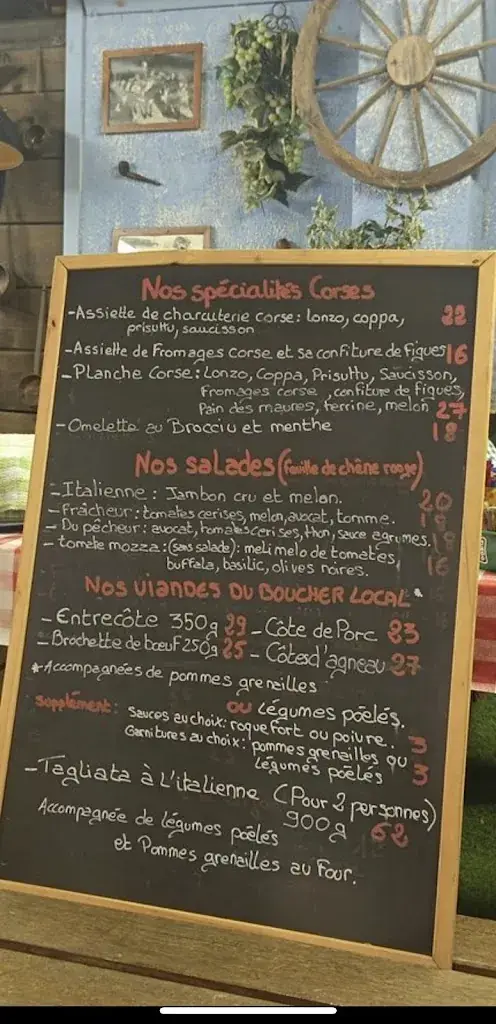 Nos spécialités Corses
-Assiette de charcuterie corse: lonzo, coppa, 22
prisuttu, saucisson
-Assiette de Fromages corse et sa confiture de figues 16
-Planche Corse: Lonzo, Coppa, Prisuttu, Saucisson,
Fromages corse, confiture de figues,
Pain des maures, terrine, melon 27
-Omelette au Brocciu et menthe 18
Nos salades (feuille de chêne rouge)
-Italienne: Jambon cru et melon. 20
-Fraîcheur: tomates cerises, melon, avocat, tomme. 19
-Du pêcheur: avocat, tomates cerises, thon, sauce agrumes. 19
-tomate mozza: (sans salade): meli melo de tomates, 16
buffala, basilic, olives noires.
Nos viandes du boucher local*
-Entrecôte 350g 29 -Côte de Porc 23
-Brochette de boeuf 250g 25 -Côtes d'agneau 27
*Accompagnées de pommes grenailles
ou légumes poêlés.
Supplément: Sauces au choix: roquefort ou poivre. 3
Garnitures au choix: pommes grenailles ou
légumes poêlés 3
-Tagliata à l'italienne (Pour 2 personnes)
900g 62
Accompagnée de légumes poêlés
et Pommes grenailles au Four.